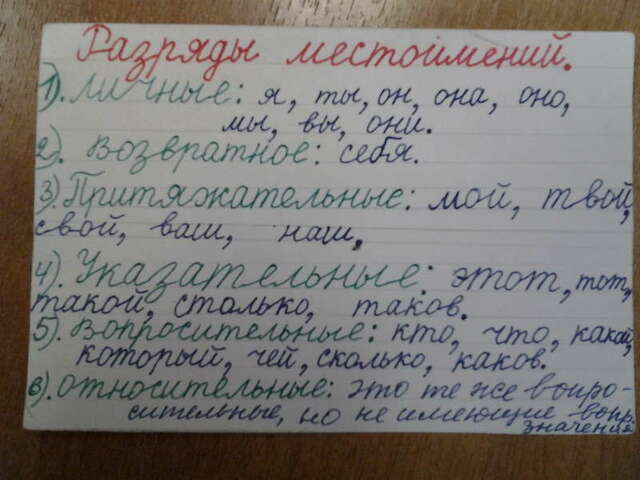 Разряды местоимений.
1). Личные: я, ты, он, она, оно,
мы, вы, они.
2). Возвратное: себя.
3). Притяжательные: мой, твой,
свой, ваш, наш,
4). Указательные: этот, тот,
такой, столько, таков.
5). Вопросительные: кто, что, какой,
который, чей, сколько, каков.
6). Относительные: это те же вопро-
сительные, но не имеющие вопр.
значения